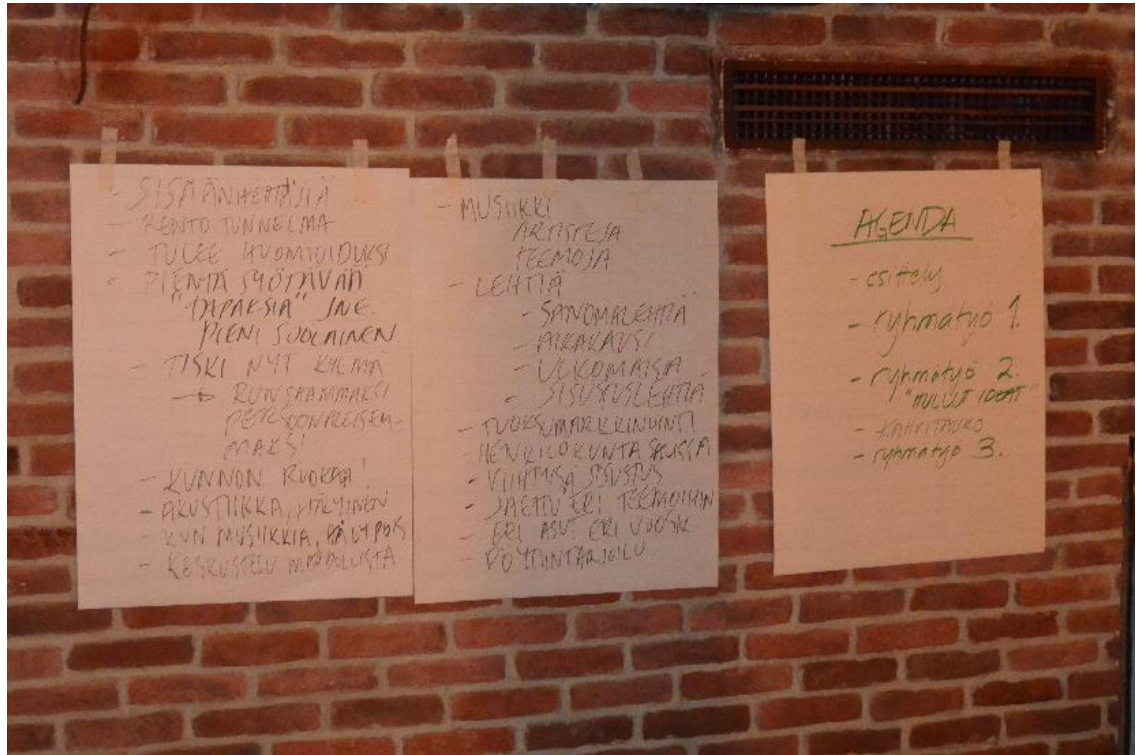 - SISÄÄNHEITTÄJIÄ
- RENTO TUNNELMA
- TULEE HUOMIOIDUKSI
- PIENTÄ SYÖTÄVÄÄ
"TAPAKSIA" JNE.
PIENI SUOLAINEN
- TISKI NYT KYLMÄ
→ RUNSKAMMAKSI
PERSOONALLISEM-
MAKSI
- KUNNON RUOKAA!
- AKUSTIIKKA, HÄLYINEN
- KUN MUSIIKKIA, HÄLY POIS
- KESKUSTELU MAHDOLLISTA
- MUSIIKKI
ARTISTEJA
TEEMOJA
- LEHTIÄ
- SANOMALEHTIÄ
- AIKAKAUSI
- ULKOMAISIA
- SISUSTUSLEHTIÄ
- TUOKSUMARKKINOINTI
- HENKILÖKUNTA SALISSA
- VIIHTYISÄ SISUSTUS
- JAETTU ERI TEEMOIHIN
- ERI ASUT ERI
- PÖYTIINTARJOILU
AGENDA
- esittely
- ryhmätyö 1.
- ryhmätyö 2.
"HULLUT IDEAT"
- KAHVITAUKO
- ryhmätyö 3.